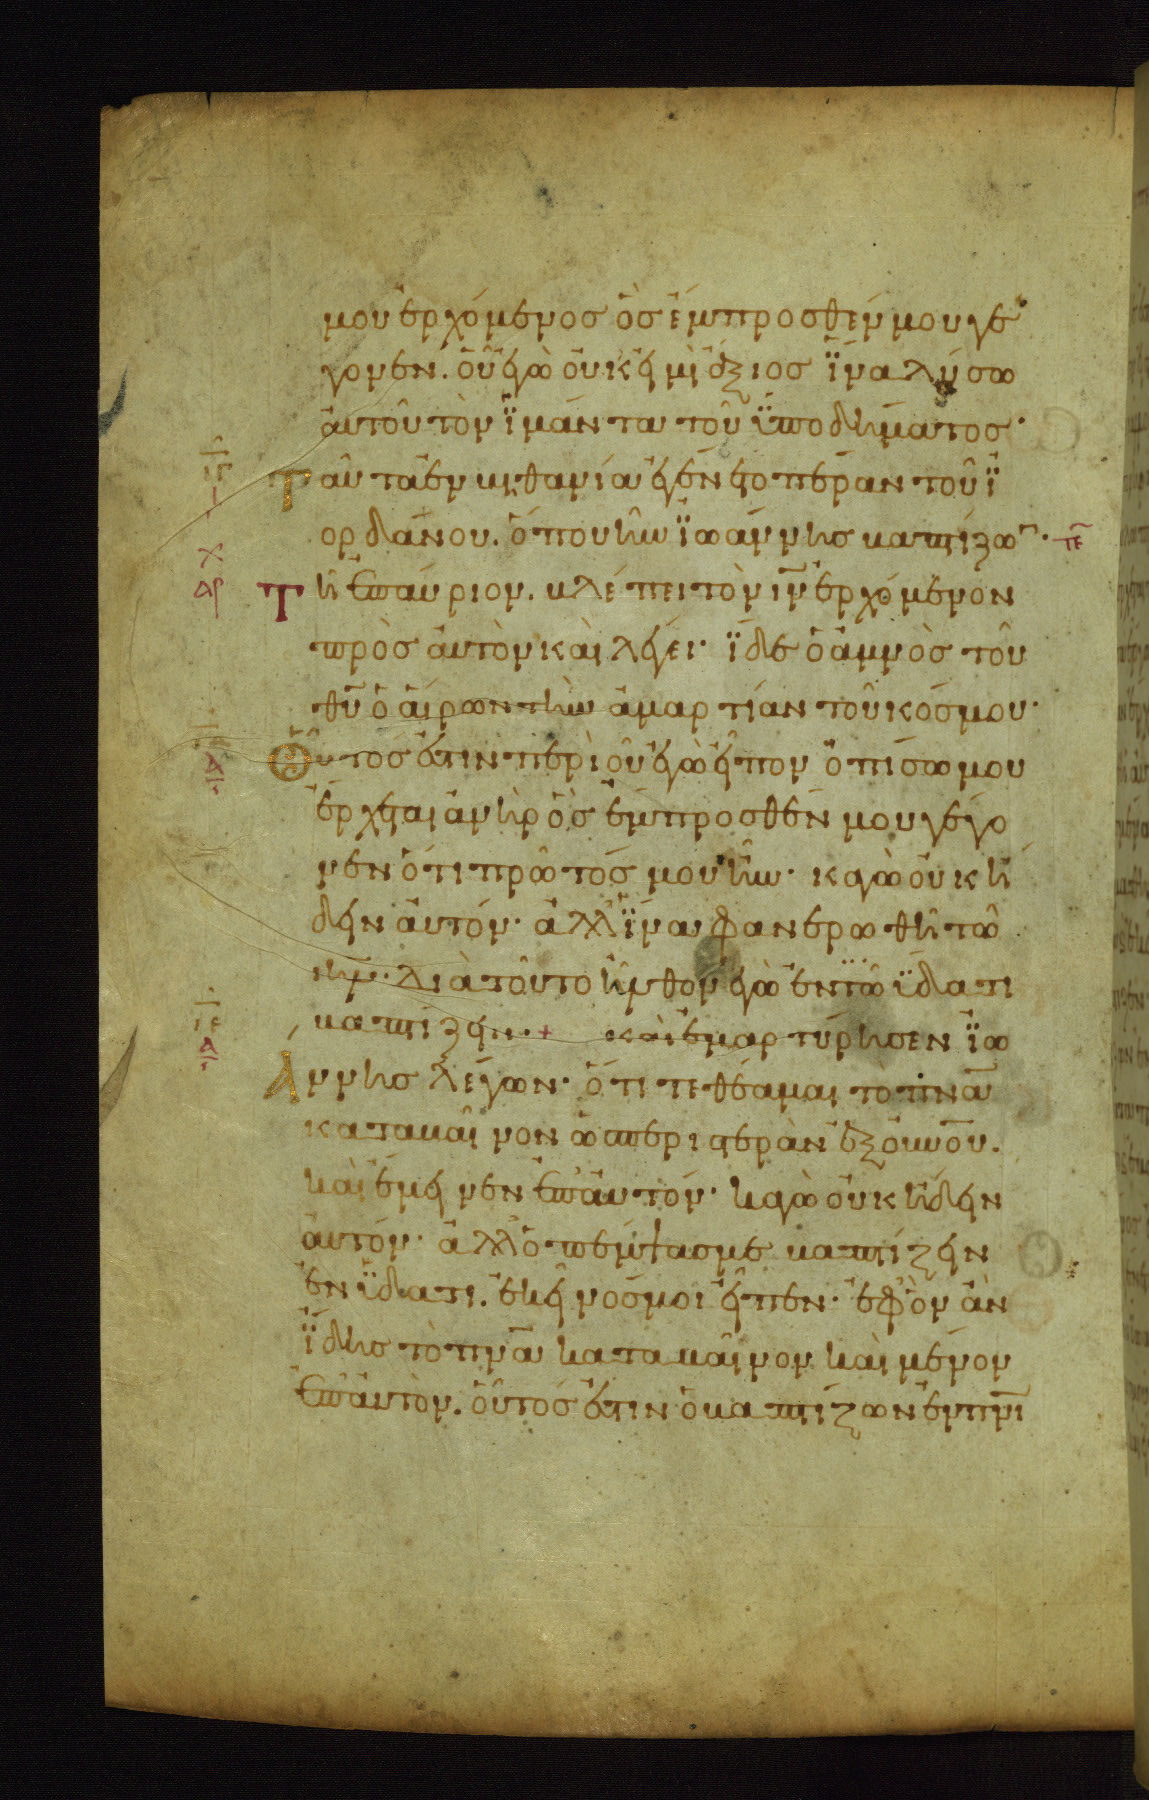 μου ἐρχόμενος ὃς ἔμπροσθέν μου γέ
γονεν. οὗ ἐγὼ οὐκ εἰμὶ ἄξιος ἵνα λύσω
αὐτοῦ τὸν ἱμάντα τοῦ ὑποδήματος·
Ταῦτα ἐν βηθανία ἐγένετο πέραν τοῦ ἰ
ορδάνου. ὅπου ἦν ἰωάννης βαπτίζω̅· τε̅
Τῆ ἐπαύριον. βλέπει τὸν ι̅ν̅ ἐρχόμενον
πρὸς αὐτὸν καὶ λέγει· ἴδε ὁ ἀμνὸς τοῦ
θ̅υ̅ ὁ αἴρων τὴν ἁμαρτίαν τοῦ κόσμου·
Οὗτός ἐστιν περὶ οὗ ἐγὼ εἶπον ὀπίσω μου
ἔρχεται ἀνὴρ ὃς ἔμπροσθέν μου γέγο
νεν ὅτι πρῶτός μου ἦν· κἀγὼ οὐκ ἤ
δειν αὐτόν· ἀλλ' ἵνα φανερωθῆ τῶ
ι̅η̅λ̅· διὰ τοῦτο ἦλθον ἐγὼ ἐν τῶ ὕδατι
βαπτίζειν·+ καὶ ἐμαρτύρησεν ἰω
Αννης λέγων· ὅτι τεθέαμαι τὸ π̅ν̅α̅
καταβαῖνον ὡς περιστερὰν ἐξ ο̅υ̅ν̅ο̅υ̅.
καὶ ἔμεινεν ἐπ' αὐτόν· κἀγὼ οὐκ ἤδειν
αὐτόν· ἀλλ' ὁ πέμψας με βαπτίζειν
ἐν ὕδατι. ἐκεῖνός μοι εἶπεν· ἐφ' ὃν ἂν
ἴδης τὸ π̅ν̅α̅ καταβαῖνον καὶ μένον
ἐπ' αὐτὸν. οὗτός ἐστιν ὁ βαπτίζων ἐν π̅ν̅ι̅